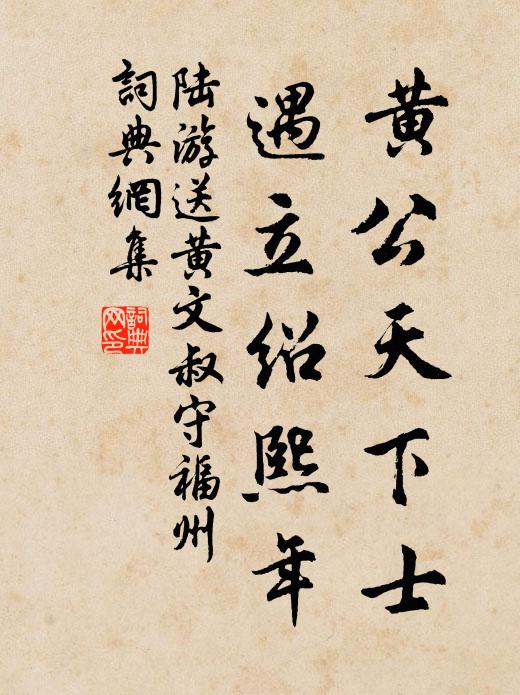 黄公天下士
遇立绍熙年
陆游送黄文叔守福州
詞典網集
詞典网印